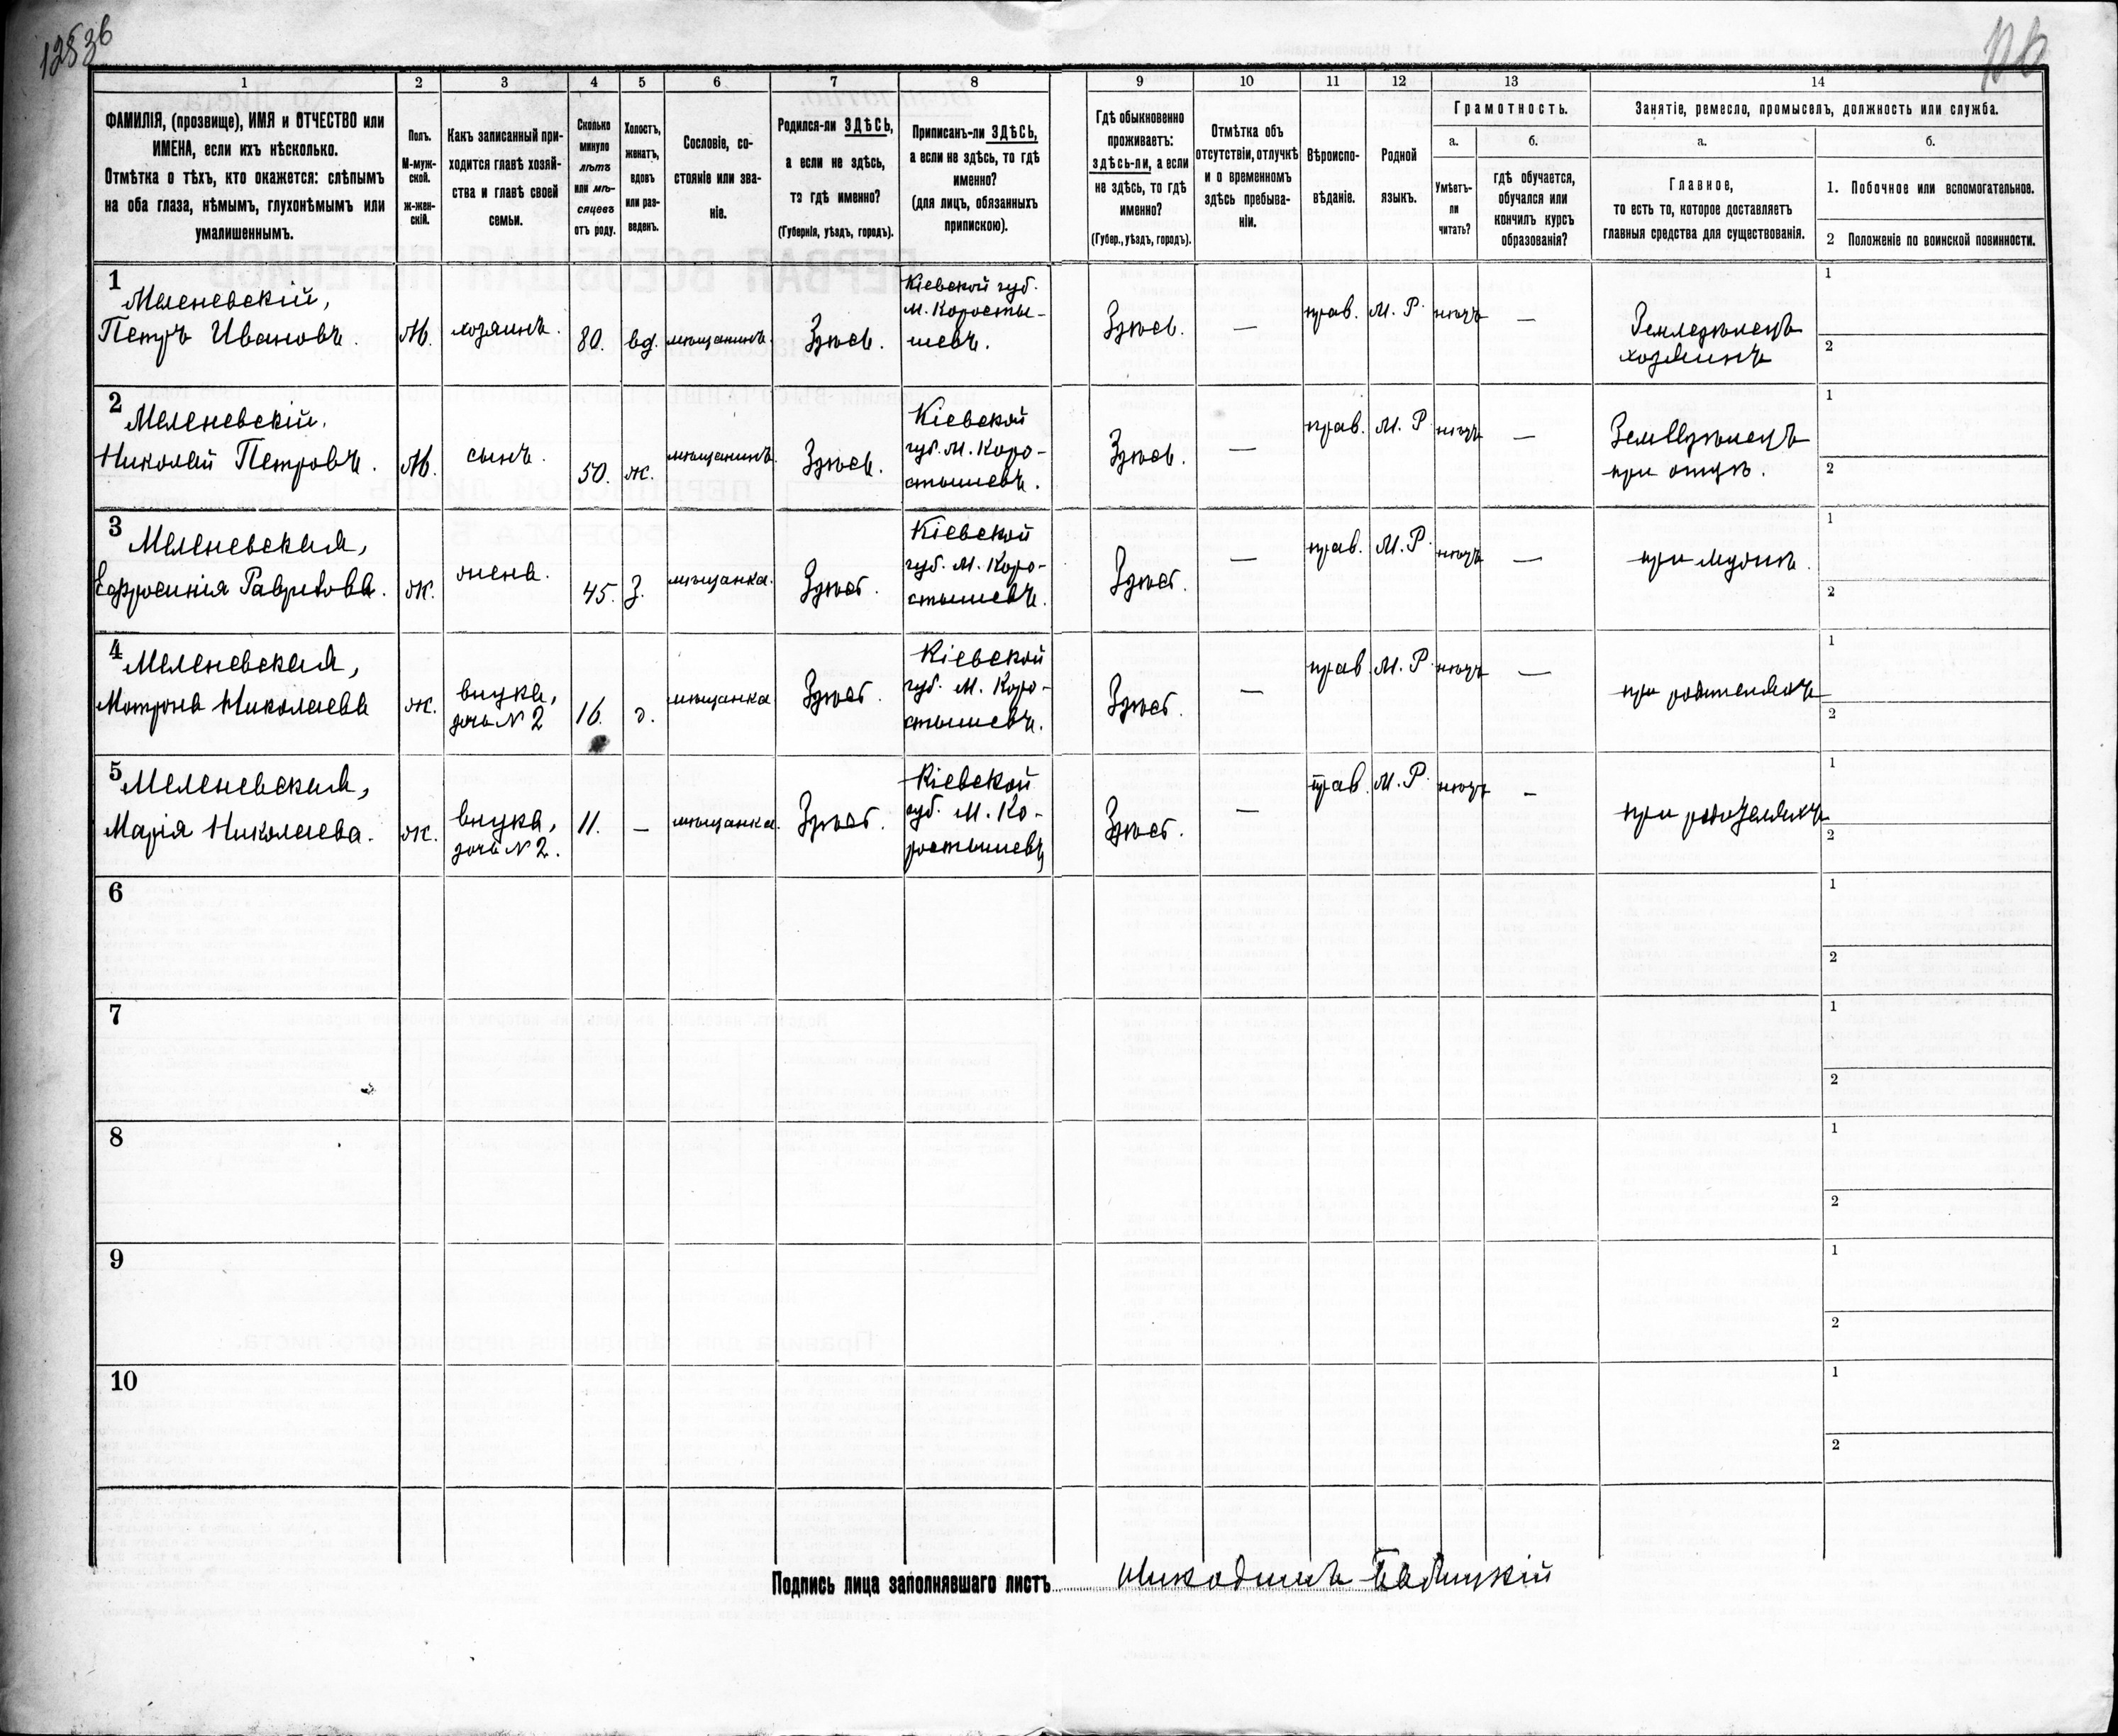 1253б
1
2
3
4
5
6
7
8
9
10
11
12
13
14
ФАМИЛІЯ, (прозвище), ИМЯ и ОТЧЕСТВО или
ИМЕНА, если ихъ нѣсколько.
Отмѣтка о тѣхъ, кто окажется: слѣпымъ
на оба глаза, нѣмымъ, глухонѣмымъ или
умалишеннымъ.
Полъ.
М-муж-
ской.
ж-жен-
скій.
Какъ записанный при-
ходится главѣ хозяй-
ства и главѣ своей
семьи.
Сколько
минуло
лѣтъ
или мѣ-
сяцевъ
отъ роду.
Холостъ,
женатъ,
вдовъ
или раз-
веденъ.
Сословіе, со-
стояніе или зва-
ніе.
Родился-ли ЗДѢСЬ,
а если не здѣсь,
то гдѣ именно?
(Губернія, уѣздъ, городъ).
Приписанъ-ли ЗДѢСЬ,
а если не здѣсь, то гдѣ
именно?
(для лицъ, обязанныхъ
припискою).
Гдѣ обыкновенно
проживаетъ:
здѣсь-ли, а если
не здѣсь, то гдѣ
именно?
(Губер., уѣздъ, городъ).
Отмѣтка объ
отсутствіи, отлучкѣ
и о временномъ
здѣсь пребыва-
ніи.
Вѣроиспо-
вѣданіе.
Родной
языкъ.
Грамотность.
а.
Умѣетъ-
ли
читать?
б.
гдѣ обучается,
обучался или
кончилъ курсъ
образованія?
Занятіе, ремесло, промыселъ, должность или служба.
а.
Главное,
то есть то, которое доставляетъ
главныя средства для существованія.
б.
1. Побочное или вспомогательное.
2 Положеніе по воинской повинности.
1
Меленевскій,
Петръ Ивановъ.
М.
хозяинъ.
80.
вд.
мѣщанинъ
Здѣсь.
Кіевской губ.
М. Коросты-
шевъ.
Здѣсь.
—
прав.
М. Р.
нѣтъ
—
Земледѣлецъ
хозяинъ
1
2
2
Меленевскій.
Николай Петровъ.
М.
сынъ.
50.
ж.
мѣщанинъ.
Здѣсь.
Кіевской
губ. М. Коро-
стышевъ.
Здѣсь.
—
прав.
М. Р.
нѣтъ
—
Земледѣлецъ
при отцѣ.
1
2
3
Меленевская,
Ефросинія Гаврилова.
ж.
жена.
45.
З.
мѣщанка.
Здѣсь.
Кіевской
губ. М. Коро-
стышевъ.
Здѣсь.
—
прав.
М. Р.
нѣтъ
—
при мужѣ.
1
2
4
Меленевская,
Мотрона Николаева
ж.
внука,
дочь № 2
16.
д.
мѣщанка
Здѣсь.
Кіевской
губ. М. Коро-
стышевъ.
Здѣсь.
—
прав.
М. Р.
нѣтъ
—
при родителяхъ
1
2
5
Меленевская,
Марія Николаева.
ж.
внука,
дочь № 2.
11.
—
мѣщанка.
Здѣсь.
Кіевской
губ. М. Ко-
ростышевъ
Здѣсь.
—
прав.
М. Р.
нѣтъ
—
при родителяхъ
1
2
6
1
2
7
1
2
8
1
2
9
1
2
10
1
2
Подпись лица заполнявшаго листъ